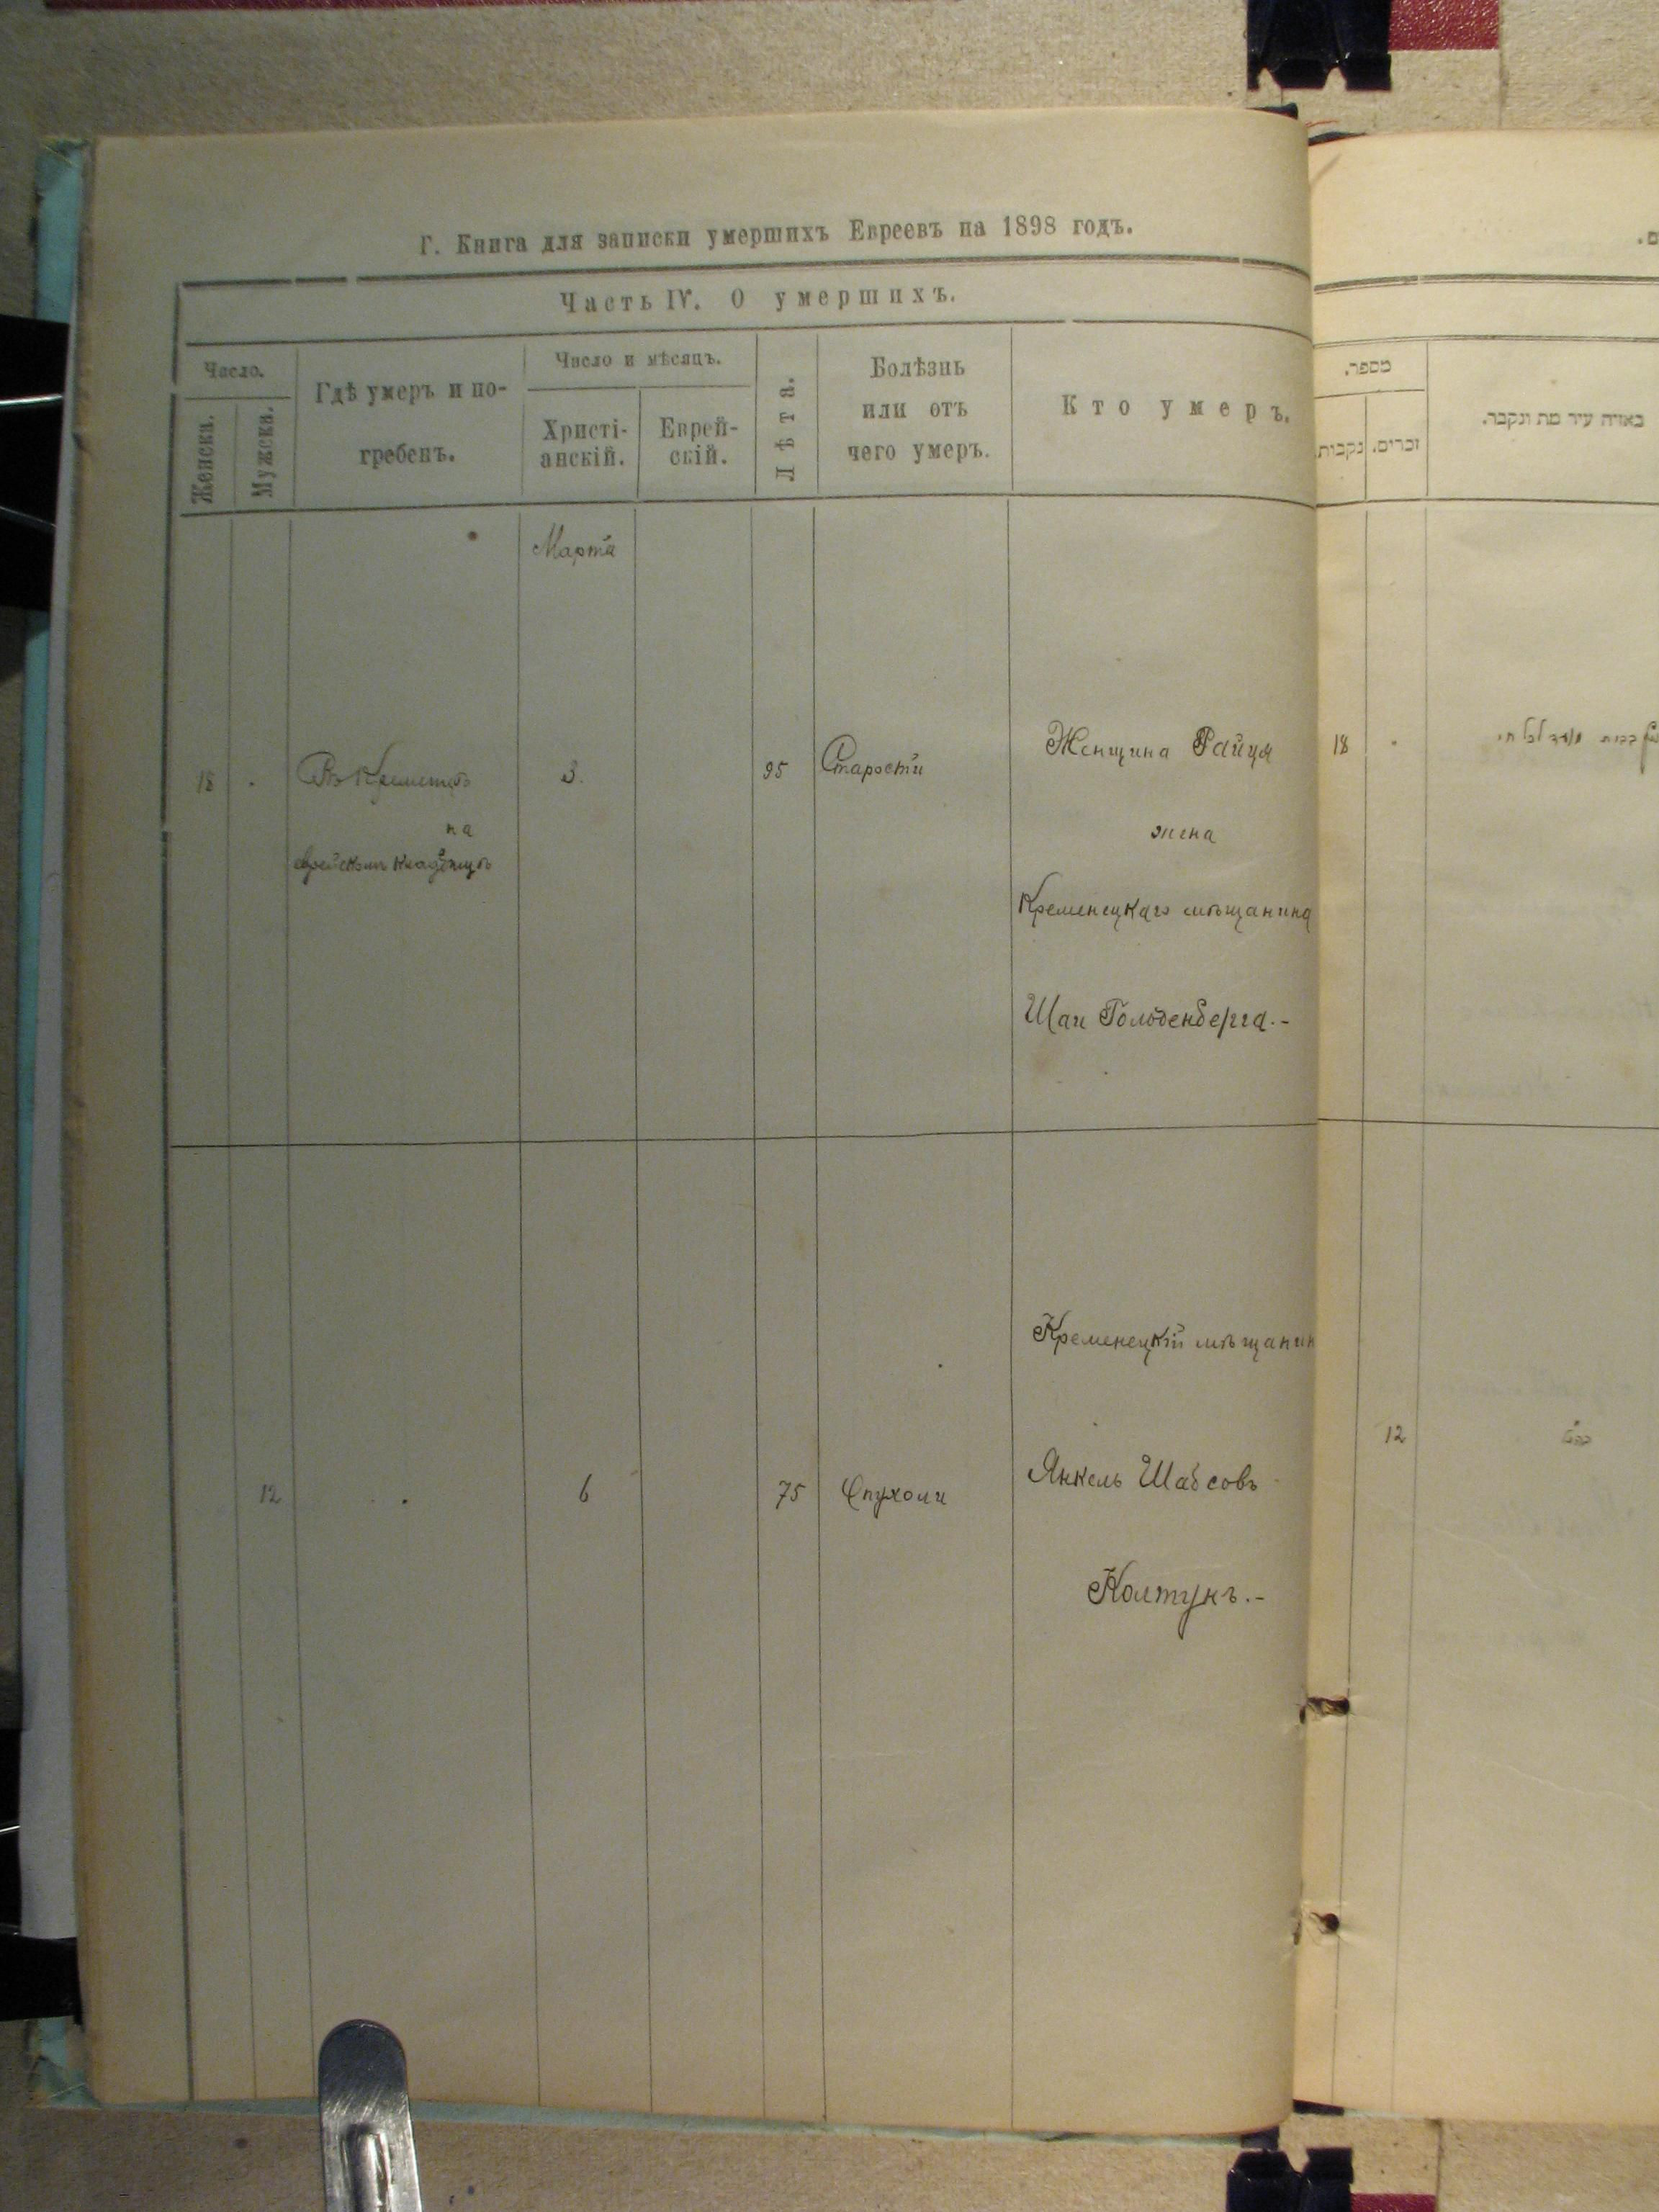 Г. Книга для записки умершихъ Евреевъ на 1898 годъ.
Часть IV. О умершихъ.
Число.
Женска.
Мужска.
Гдѣ умеръ и по-
гребенъ.
Число и мѣсяцъ.
Христі-
анскій.
Еврей-
скій.
Лѣта.
Болѣзнь
или отъ
чего умеръ.
Кто умеръ.
Марта
18
Въ Кременцѣ
на
еврейскомъ кладбищѣ
3.
95
Старости
Женщина Райця
жена
Кременецкаго мѣщанина
Шаи Гольденберга.-
12
6
75
Опухоли
Кременецкій мѣщанин
Янкель Шабсовъ
Колтунъ.-
מספר.
נקבות.
זכרים.
באיזה עיר מת ונקבר.
18
12